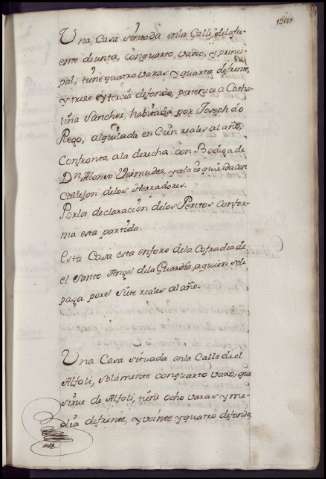 Una Casa situada en la Calle
ento Junta, con quarto vaxo, y princi
pal, tiene quatro varas, y quarta de frente,
y nueve y tercia de fondo, pertenece a Catha
lina Sanchez, habitada por Joseph do
Rego, alquilada en Cien reales al año,
Confronta a la derecha con Bodega de
Dn Alonso Vermudez, y a la izquierda con
Callejon de los
Por la declaración de los Peritos confor
ma esta partida.
Esta Casa esta en foro de la Cofradia de
el Santo Angel de la Guarda, a quien se le
paga por el siete reales al año.
Una Casa situada en la Calle de el
Alfolí, solamente con quarto vaxo, que
sirve de Alfolí, tiene ocho varas y me
dia de frente, y veinte y quatro de fondo